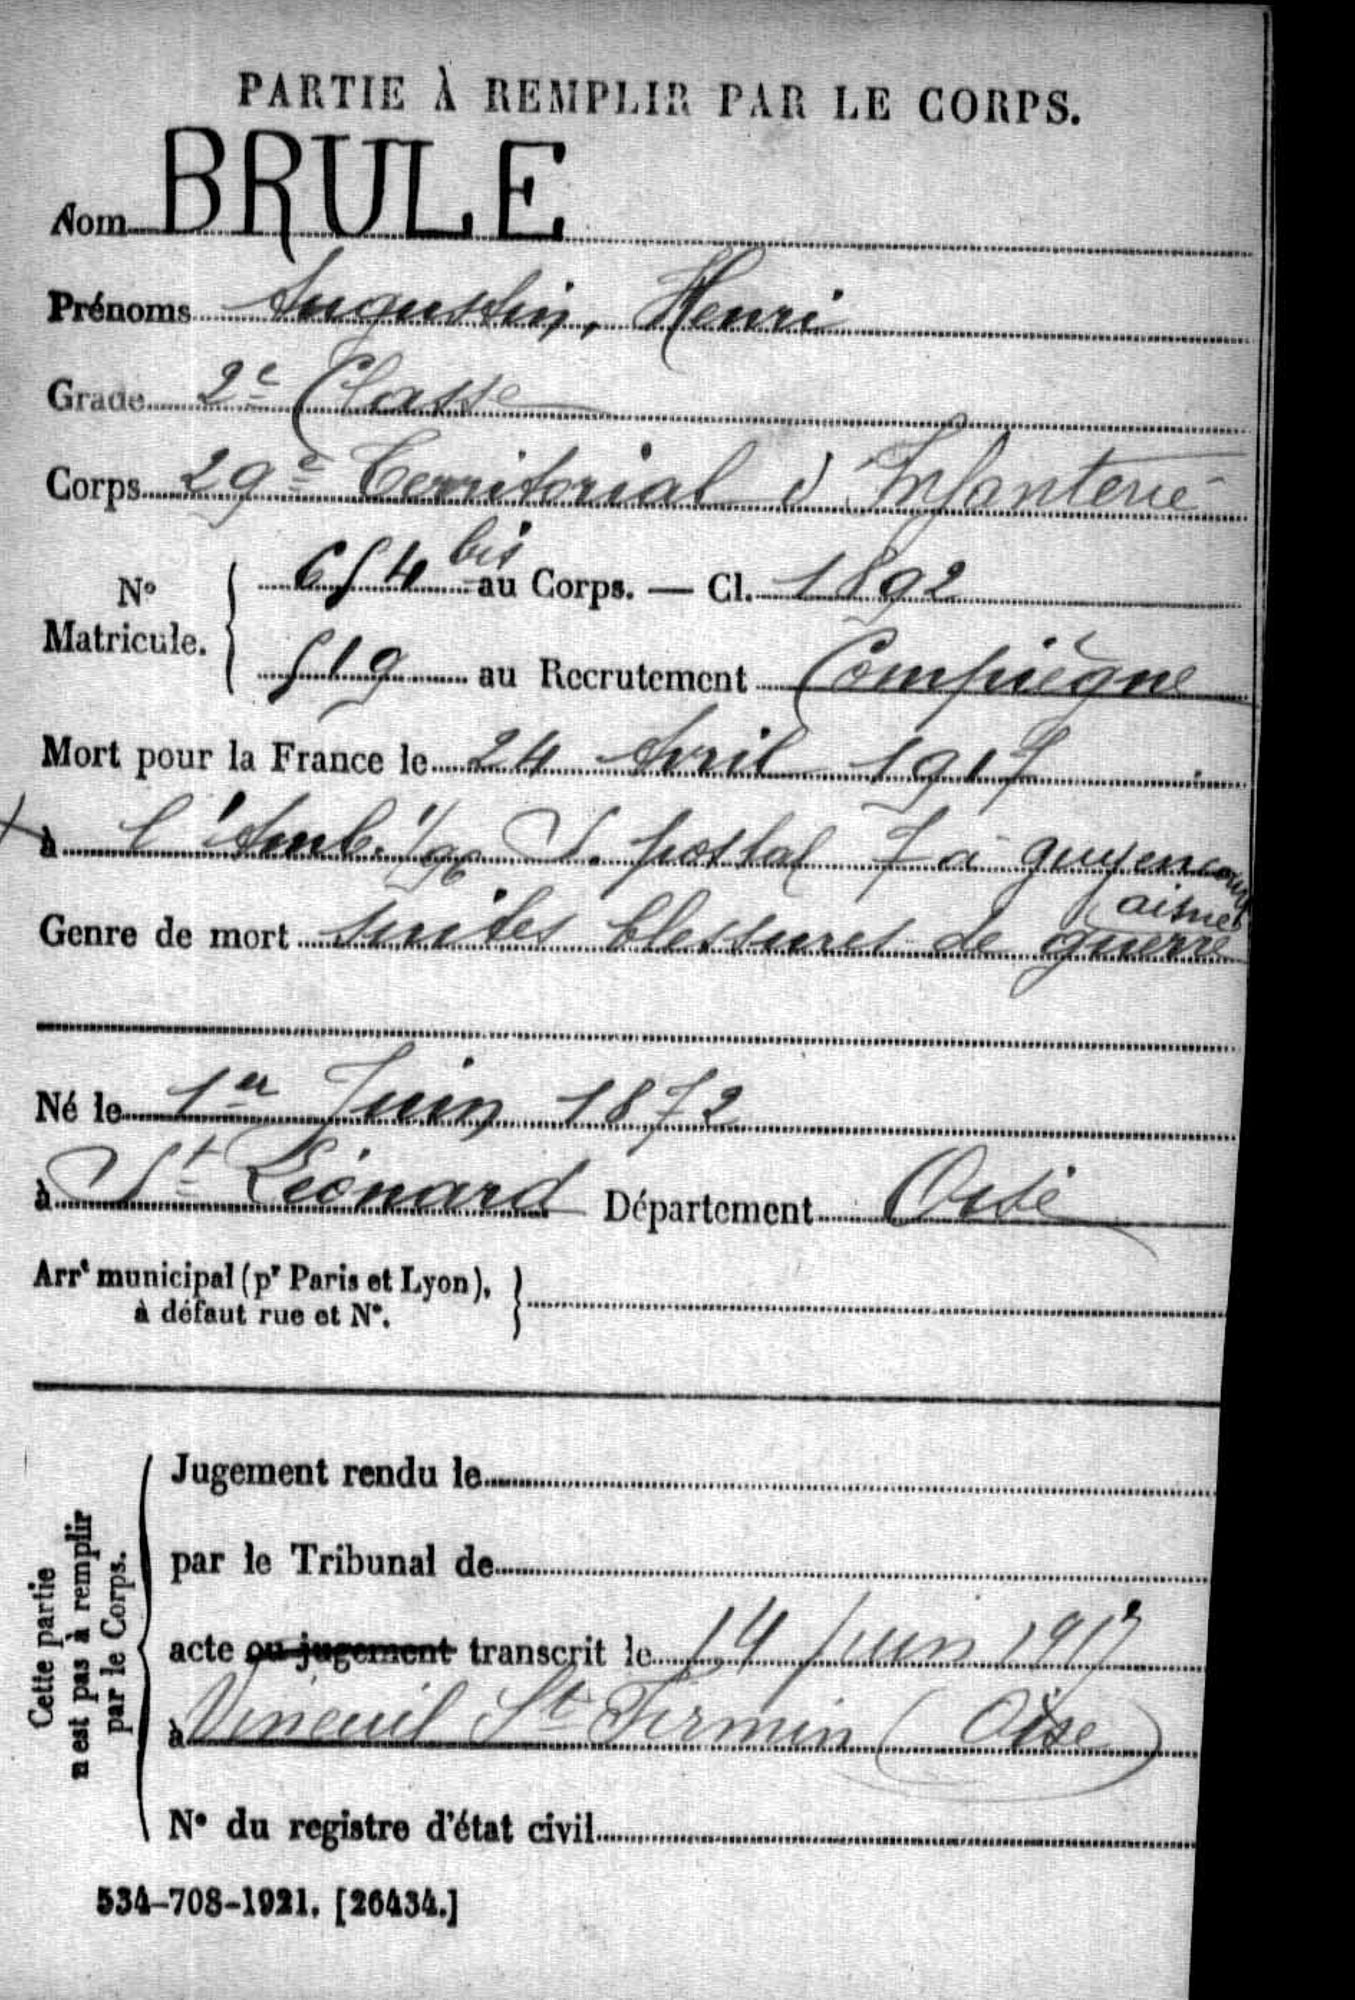 PARTIE À REMPLIR PAR LE CORPS.
Nom BRULE
Prénoms Augustin, Henri
Grade 2e Classe
Corps 29e Territorial d'Infanterie
No Matricule. 654 bis au Corps. — Cl. 1892
519 au Recrutement Compiègne
Mort pour la France le 24 Avril 1917
à l'Amb. 1/96 S. postal 7 à Guyencourt
aisne
Genre de mort suites blessures de guerre
Né le 1er Juin 1872
à St Léonard Département Oise
Arrt municipal (pr Paris et Lyon),
à défaut rue et No.
Cette partie
n'est pas à remplir
par le Corps.
Jugement rendu le
par le Tribunal de
acte ou jugement transcrit le 14 juin 1917
à Vineuil St Firmin (Oise)
No du registre d'état civil
534-708-1921. [26434.]